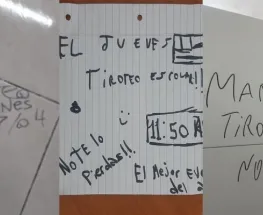 EL JUEVES 11
TIROTEO ESCOLAR!!
11:50 A
NO TE lo
pierdas!!
El Mejor Eve
del a
Nes
7/04
MAÑ
TIRO
NO